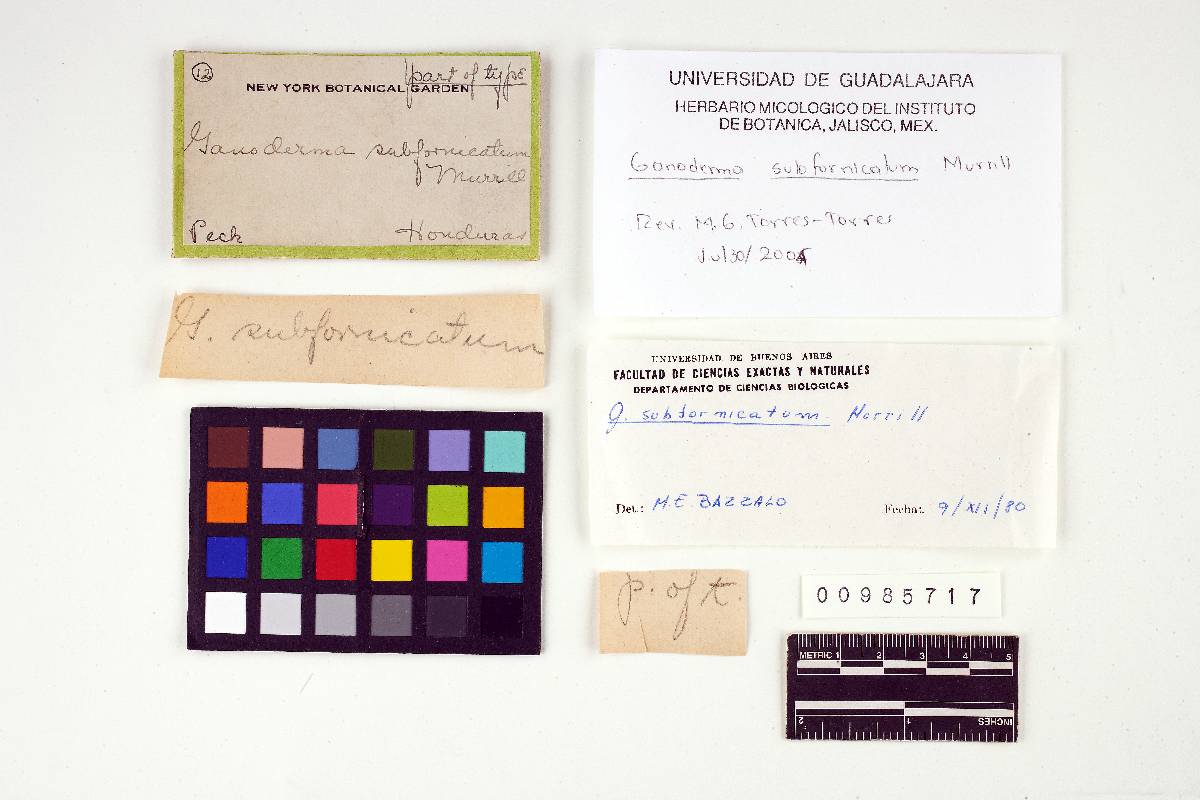 12
part of type
NEW YORK BOTANICAL GARDEN
Ganoderma subfornicatum
Murrill
Peck Honduras
G. subfornicatum
UNIVERSIDAD DE GUADALAJARA
HERBARIO MICOLOGICO DEL INSTITUTO
DE BOTANICA, JALISCO, MEX.
Ganoderma subfornicatum Murrill
Rev. M.G. Torres-Torres
Jul 30/ 2005
UNIVERSIDAD DE BUENOS AIRES
FACULTAD DE CIENCIAS EXACTAS Y NATURALES
DEPARTAMENTO DE CIENCIAS BIOLOGICAS
G. subfornicatum Murrill
Det.: M.E. BAZZALO Fecha: 9/XII/80
p. of t.
00985717
METRIC 1 2 3 4 5
2 1 INCHES